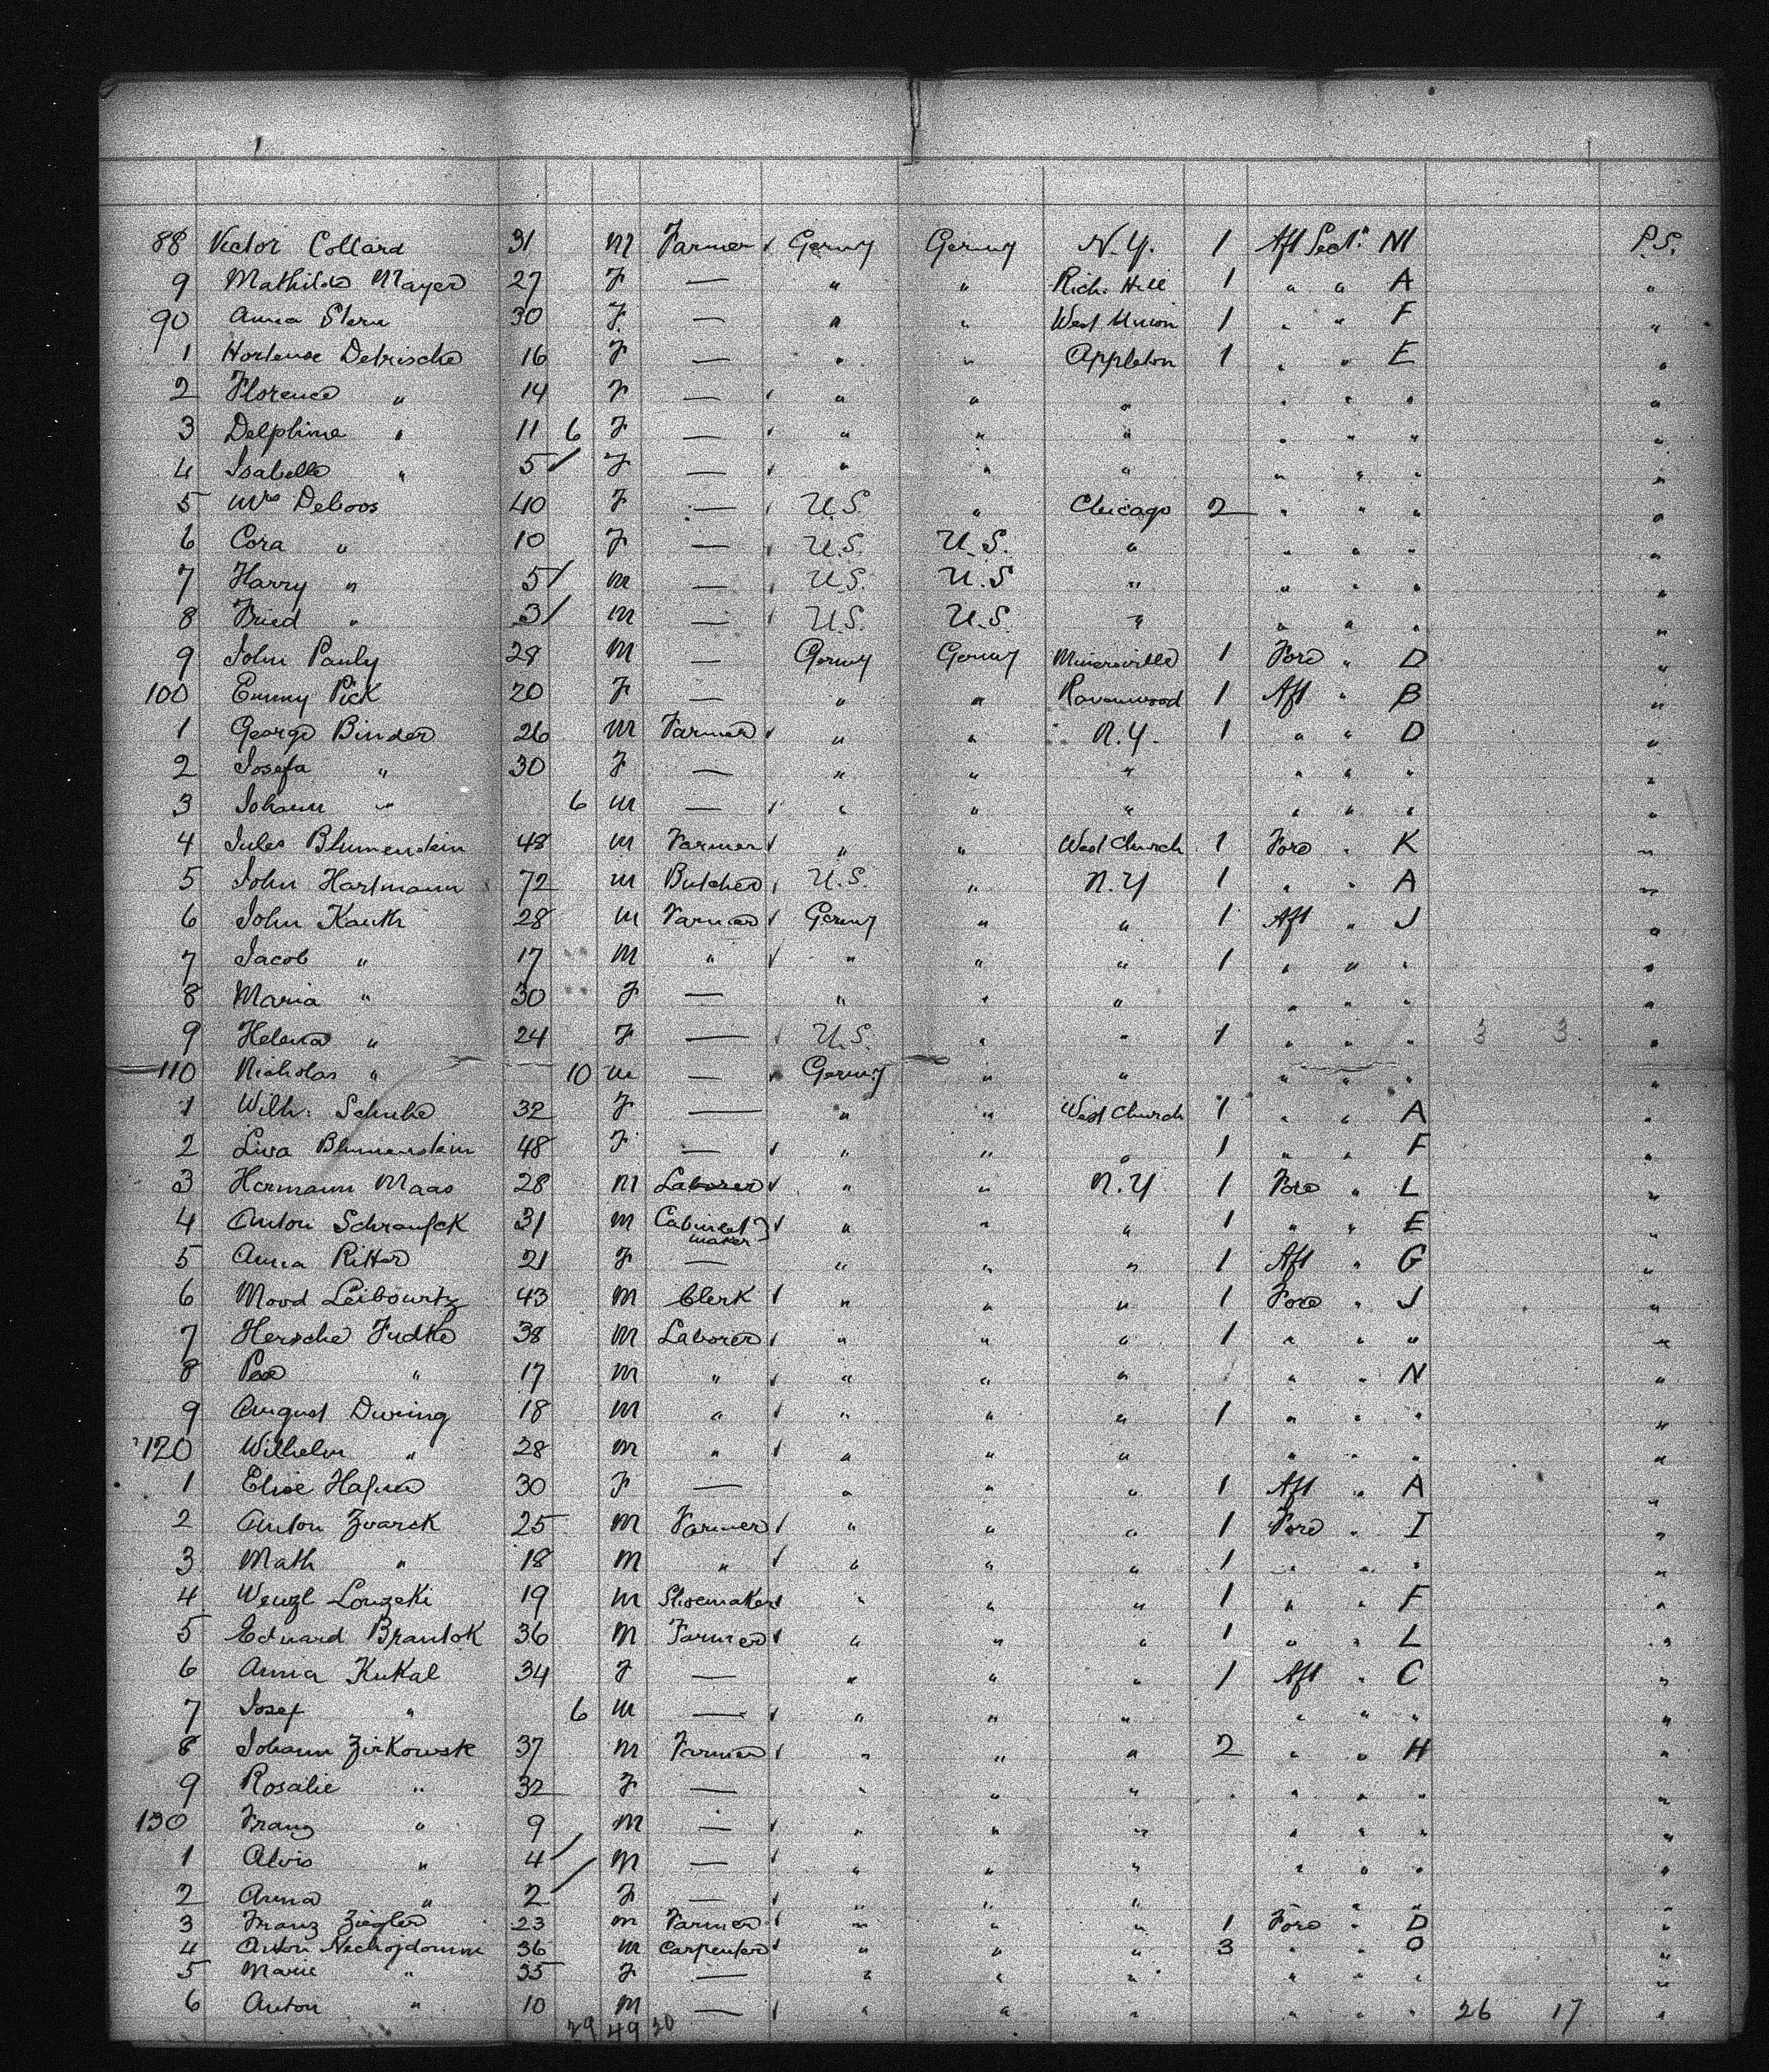 88 Victor Collard 31 M Farmer ✓ Germy Germy N.Y. 1 Aft Sect. M P.S.
9 Mathilde Mayer 27 F — " " Rich. Hill 1 " " A "
90 Anna Stern 30 F. — " " West Union 1 " " F "
1 Hortense Detrische 16 F — " " Appleton 1 " " E "
2 Florence " 14 F — " " " " " " "
3 Delphine " 11 6 F — " " " " " " "
4 Isabelle " 5 / F — " " " " " " "
5 Mrs Deboos 40 F — U.S. " Chicago 2 " " " "
6 Cora " 10 F — U.S. U.S. " " " " "
7 Harry " 5 / M — U.S. U.S " " " " "
8 Fried " 3 / M — U.S. U.S. " " " " "
9 John Pauly 28 M — Germy Germy Minersville 1 Fore " D "
100 Emmy Pick 20 F — " " Ravenwood 1 Aft " B "
1 George Binder 26 M Farmer ✓ " " N.Y. 1 " " D "
2 Josefa " 30 F — " " " " " " "
3 Johann " 6 M — ✓ " " " " " " "
4 Jules Blumenstein 48 M Farmer ✓ " " West Church 1 Fore " K "
5 John Hartmann 72 M Butcher U.S. " N.Y 1 " " A "
6 John Kauth 28 M Farmer ✓ Germy " " 1 Aft " J "
7 Jacob " 17 M " ✓ " " " 1 " " " "
8 Maria " 30 F — " " " " " " "
9 Helena " 24 F — U.S. " " 1 " " " 3 3 "
110 Nicholas " 10 M — ✓ Germy " " " " " "
1 Wilh. Schulze 32 F — " " West Church 1 " " A "
2 Lina Blumenstein 48 F — ✓ " " " 1 " " F "
3 Hermann Maas 28 M Laborer ✓ " " N.Y. 1 Fore " L "
4 Anton 31 M Cabinet maker ✓ " " " 1 " " E "
5 Anna Ritter 21 F — " " " 1 Aft " G "
6 Leibowitz 43 M Clerk ✓ " " " 1 Fore " J "
7 Hersche Judke 38 M Laborer ✓ " " " 1 " " " "
8 " 17 M " ✓ " " " " " N "
9 August During 18 M " ✓ " " " 1 " " " "
120 Wilhelm " 28 M " ✓ " " " " " " "
1 Elise Hafner 30 F — " " " 1 Aft " A "
2 Anton Zvarck 25 M Farmer ✓ " " " 1 Fore " I "
3 Math " 18 M " ✓ " " " 1 " " " "
4 Wenzl Louzeki 19 M Shoemaker ✓ " " " 1 " " F "
5 Eduard Brantok 36 M Farmer ✓ " " " 1 " " L "
6 Anna Kukal 34 F — " " " 1 Aft " C "
7 Josef " 6 M — ✓ " " " " " " "
8 Johann Zirkowsk 37 M Farmer ✓ " " " 2 " " H "
9 Rosalie " 32 F — " " " " " " "
130 Franz " 9 M — ✓ " " " " " " "
1 Alvis " 4 / M — ✓ " " " " " " "
2 Anna " 2 / F — ✓ " " " " " " "
3 Franz Ziegler 23 M Farmer ✓ " " " 1 Fore " D "
4 Anton Nechojdomm 36 M Carpenter ✓ " " " 3 " " O "
5 Marie " 35 F — " " " " " " "
6 Anton " 10 M — ✓ " " " " " " 26 17 "
29 49 20